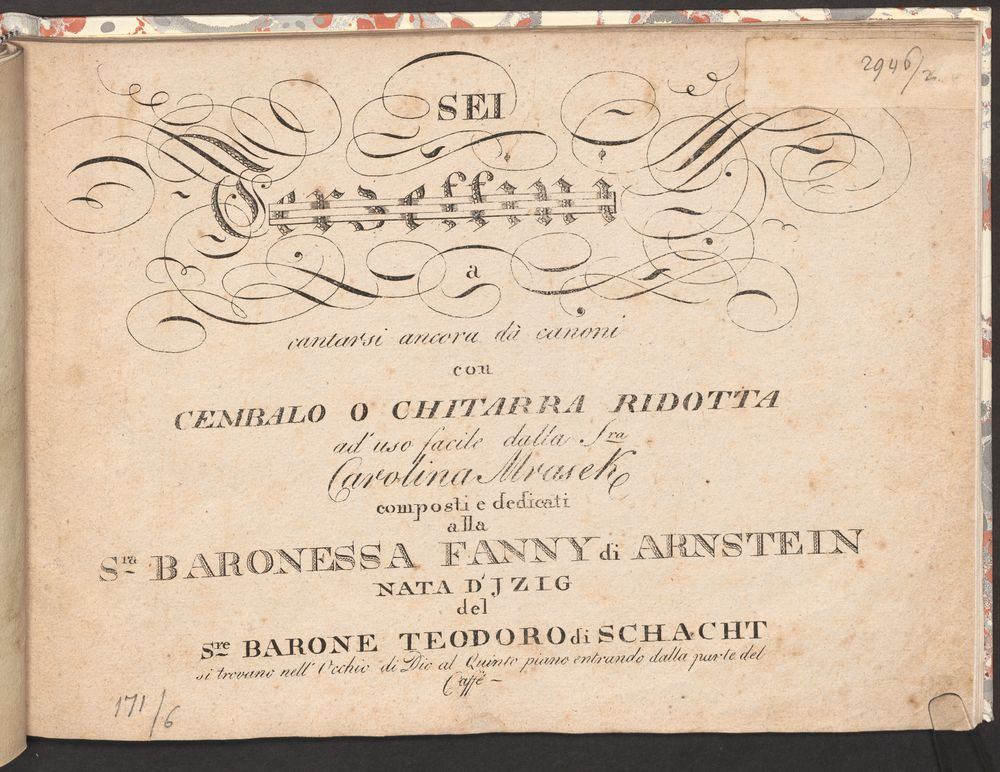 2946/2
SEI
Terzettini
a
cantarsi ancora dà canoni
con
CEMBALO O CHITARRA RIDOTTA
ad' uso facile dalla Sra
Carolina Mrasek
composti e dedicati
alla
Sra BARONESSA FANNY di ARNSTEIN
NATA D'JZIG
del
Sre BARONE TEODORO di SCHACHT
si trovano nell' Occhio di Dio al Quinto piano entrando dalla parte del
Caffè –
171/6